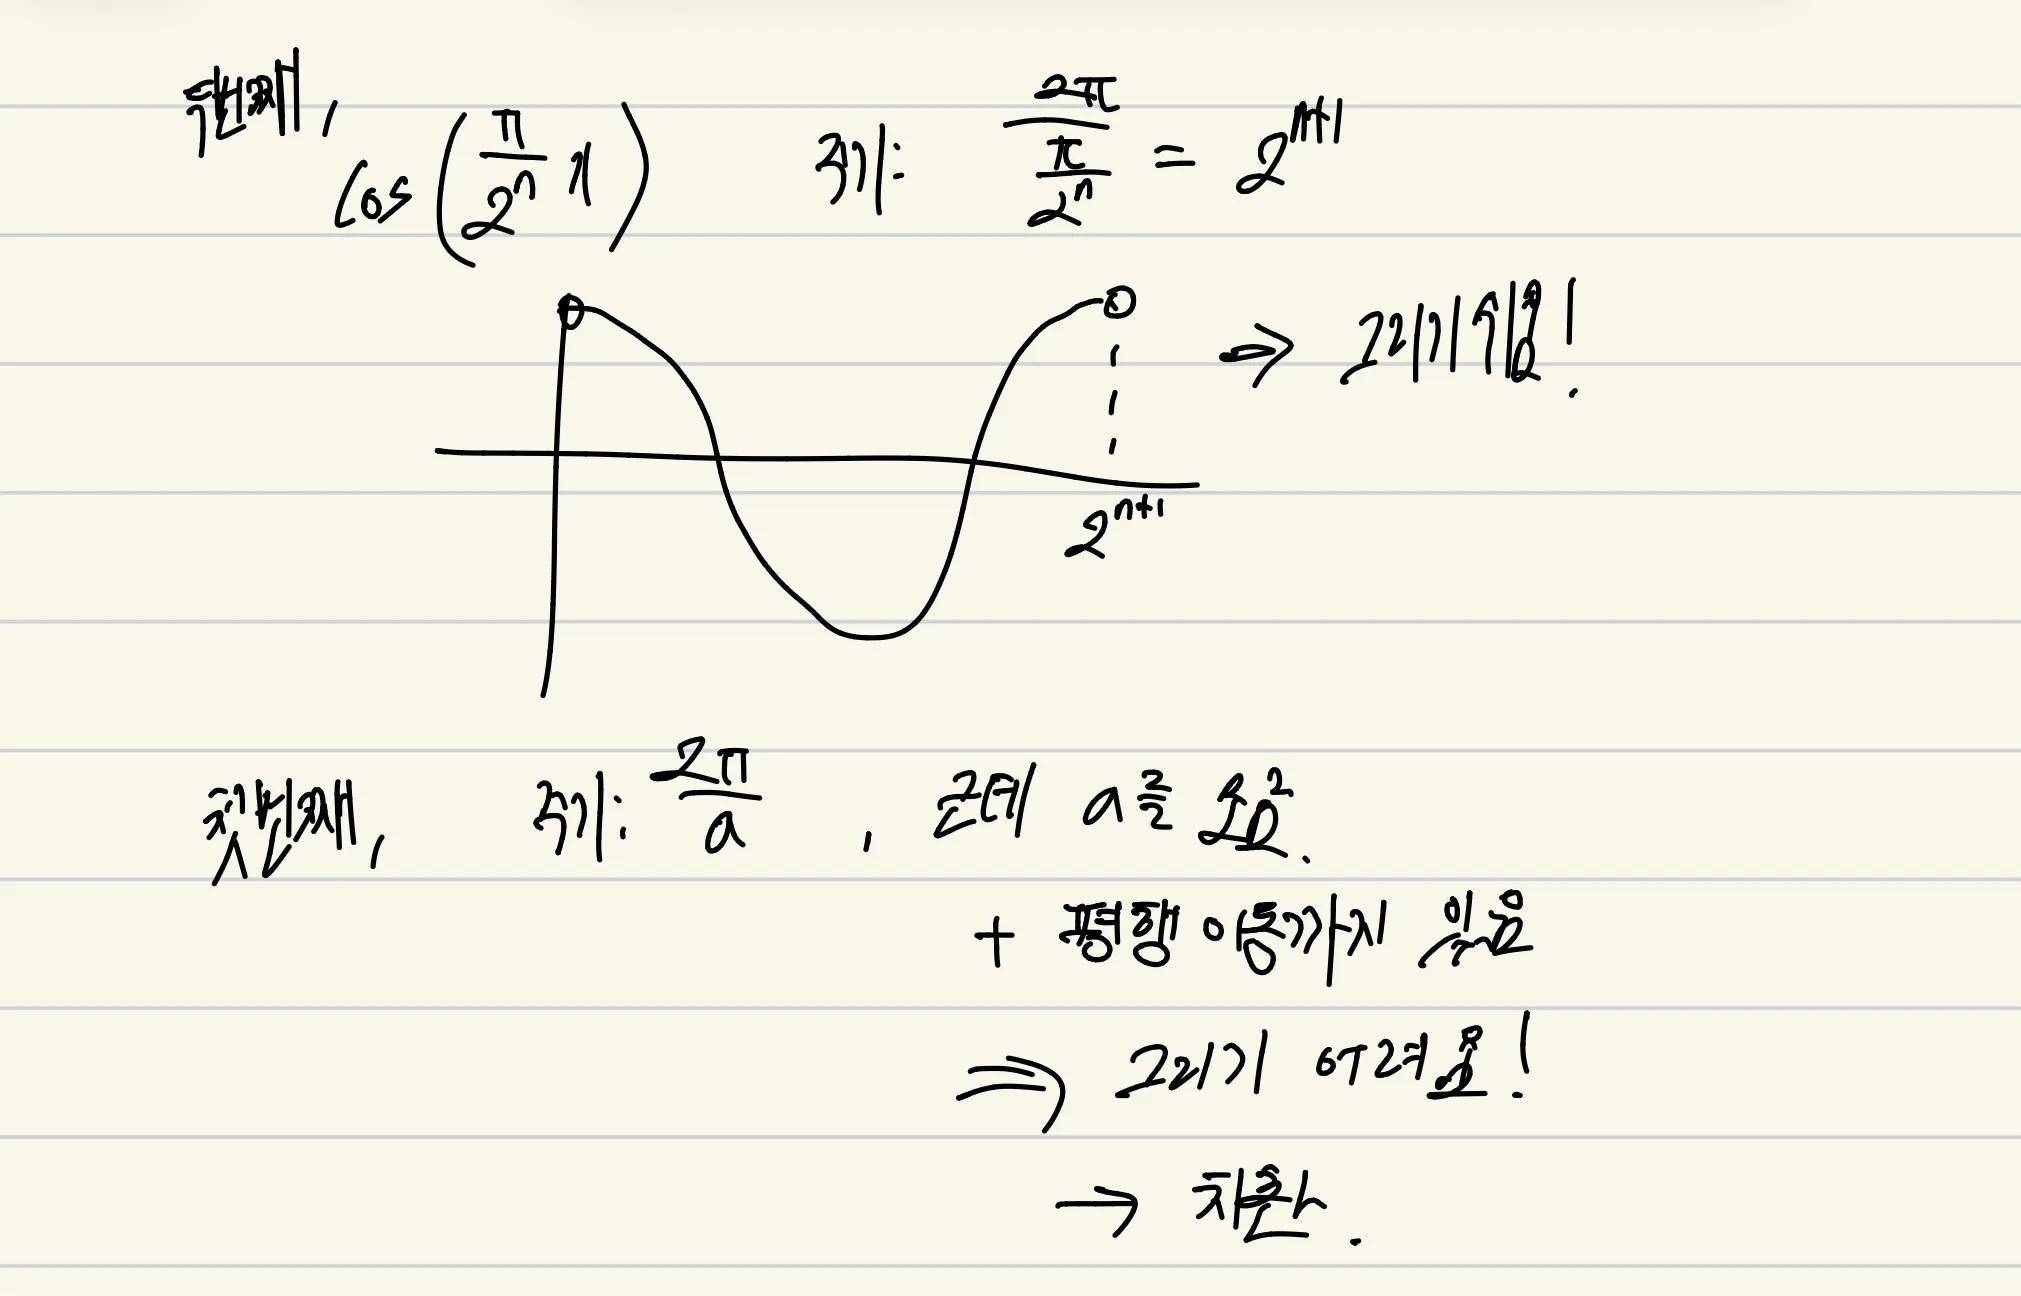 두번째,
cos(π/2ⁿ x) 주기: 2π/(π/2ⁿ) = 2ⁿ⁺¹
⇒ 그리기 쉬움!
2ⁿ⁺¹
첫번째, 주기: 2π/a , 근데 a를 모름.
+ 평행이동까지 있음
⇒ 그리기 어려움!
→ 치환